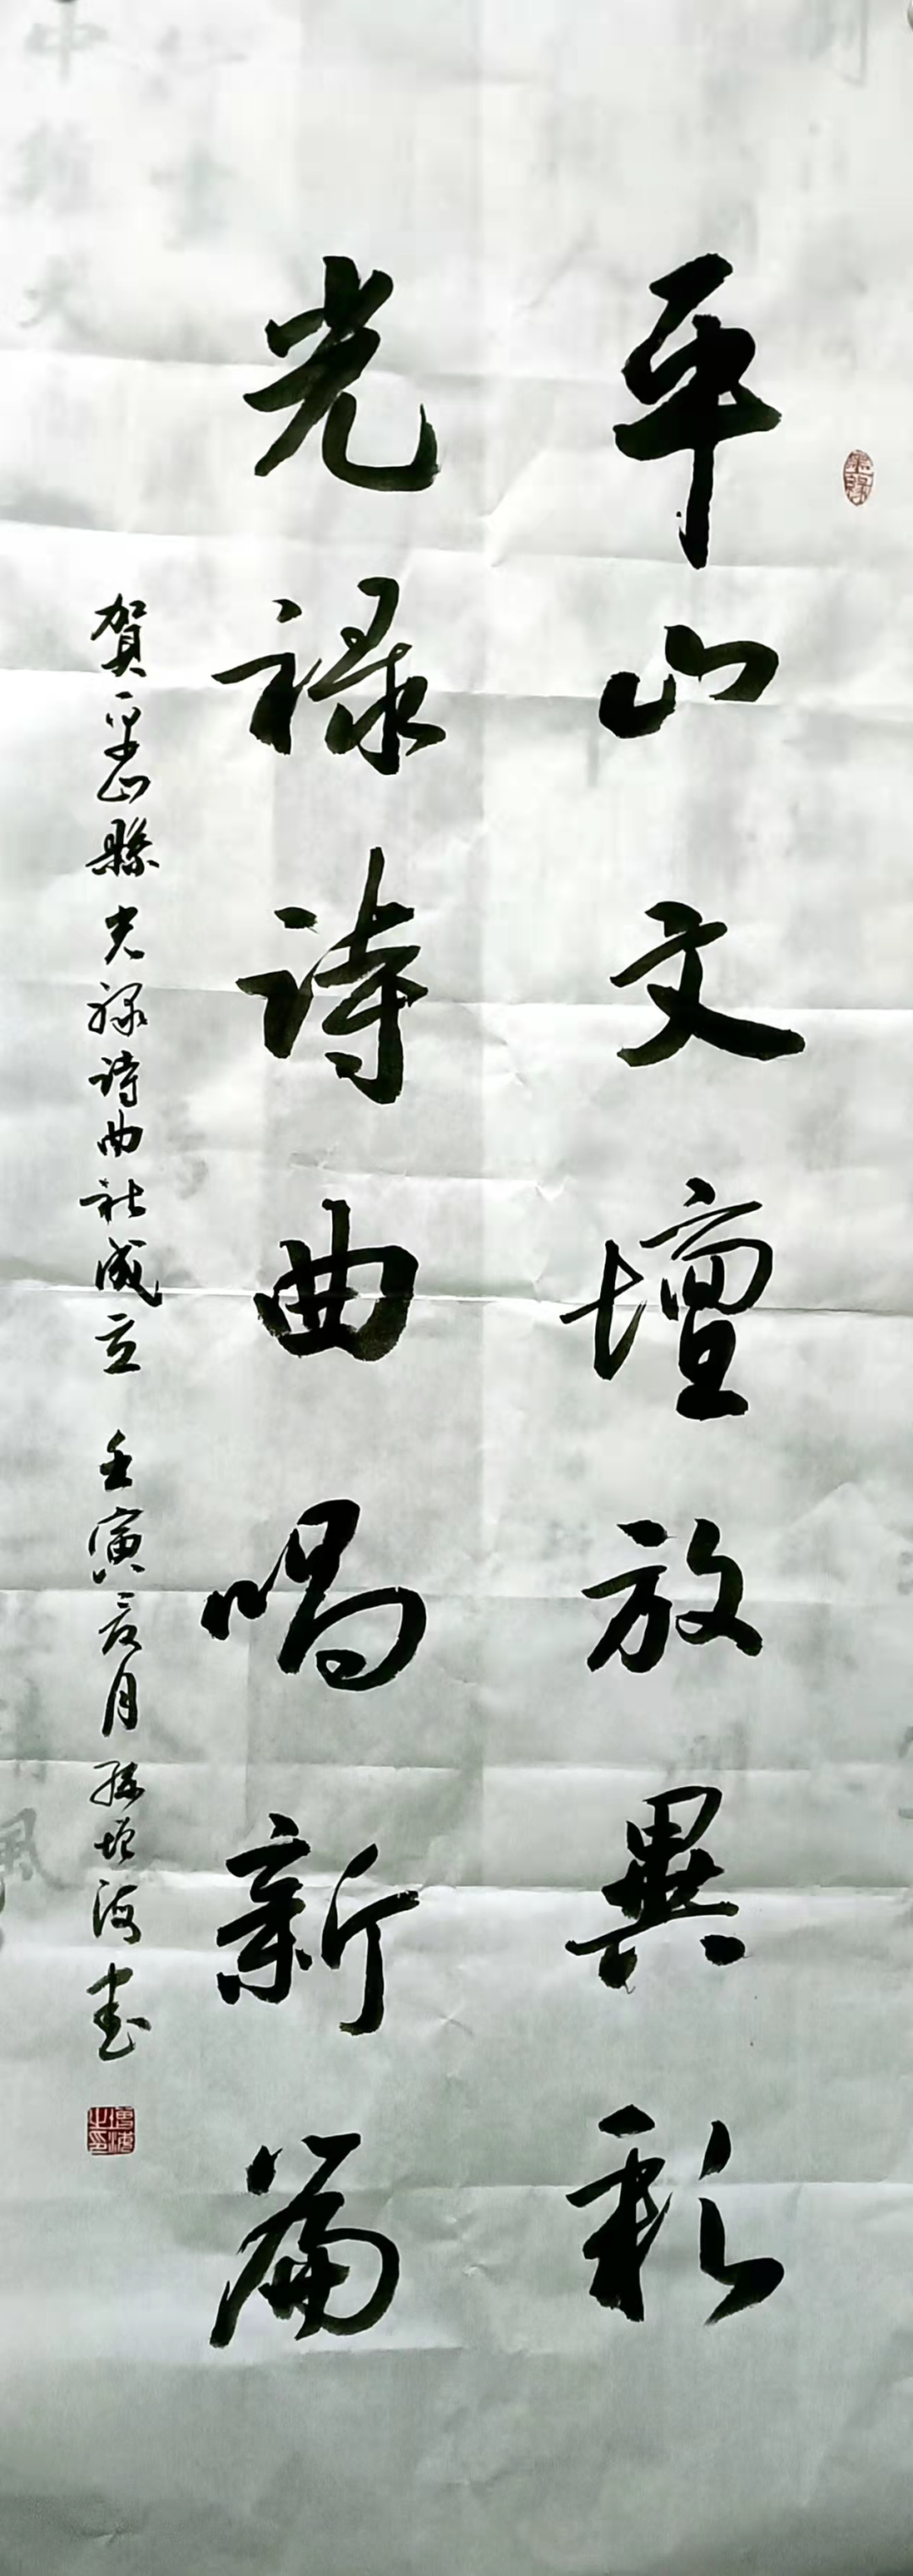 平山文壇放異彩
光禄詩曲唱新篇
賀平山縣光禄詩曲社成立 壬寅辰月 孫增海書